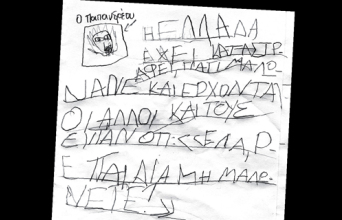 Ο Παπανδρέου
Η ΕΛΛΑΔΑ
ΕΧΕΙ ΚΑΤΑΣΤΡ
ΑΦΕΙ ΓΙΑΤΙ ΜΑΛΩ
ΝΑΝΕ ΚΑΙ ΕΡΧΟΝΤΑ
ΟΙ ΑΛΛΟΙ ΚΑΙ ΤΟΥΣ
ΕΙΠΑΝ ΟΤΙ: <<ΕΛΑ, Ρ
Ε ΠΑΙΔΙΑ ΜΗ ΜΑΛΩ
ΝΕΤΕ.>>